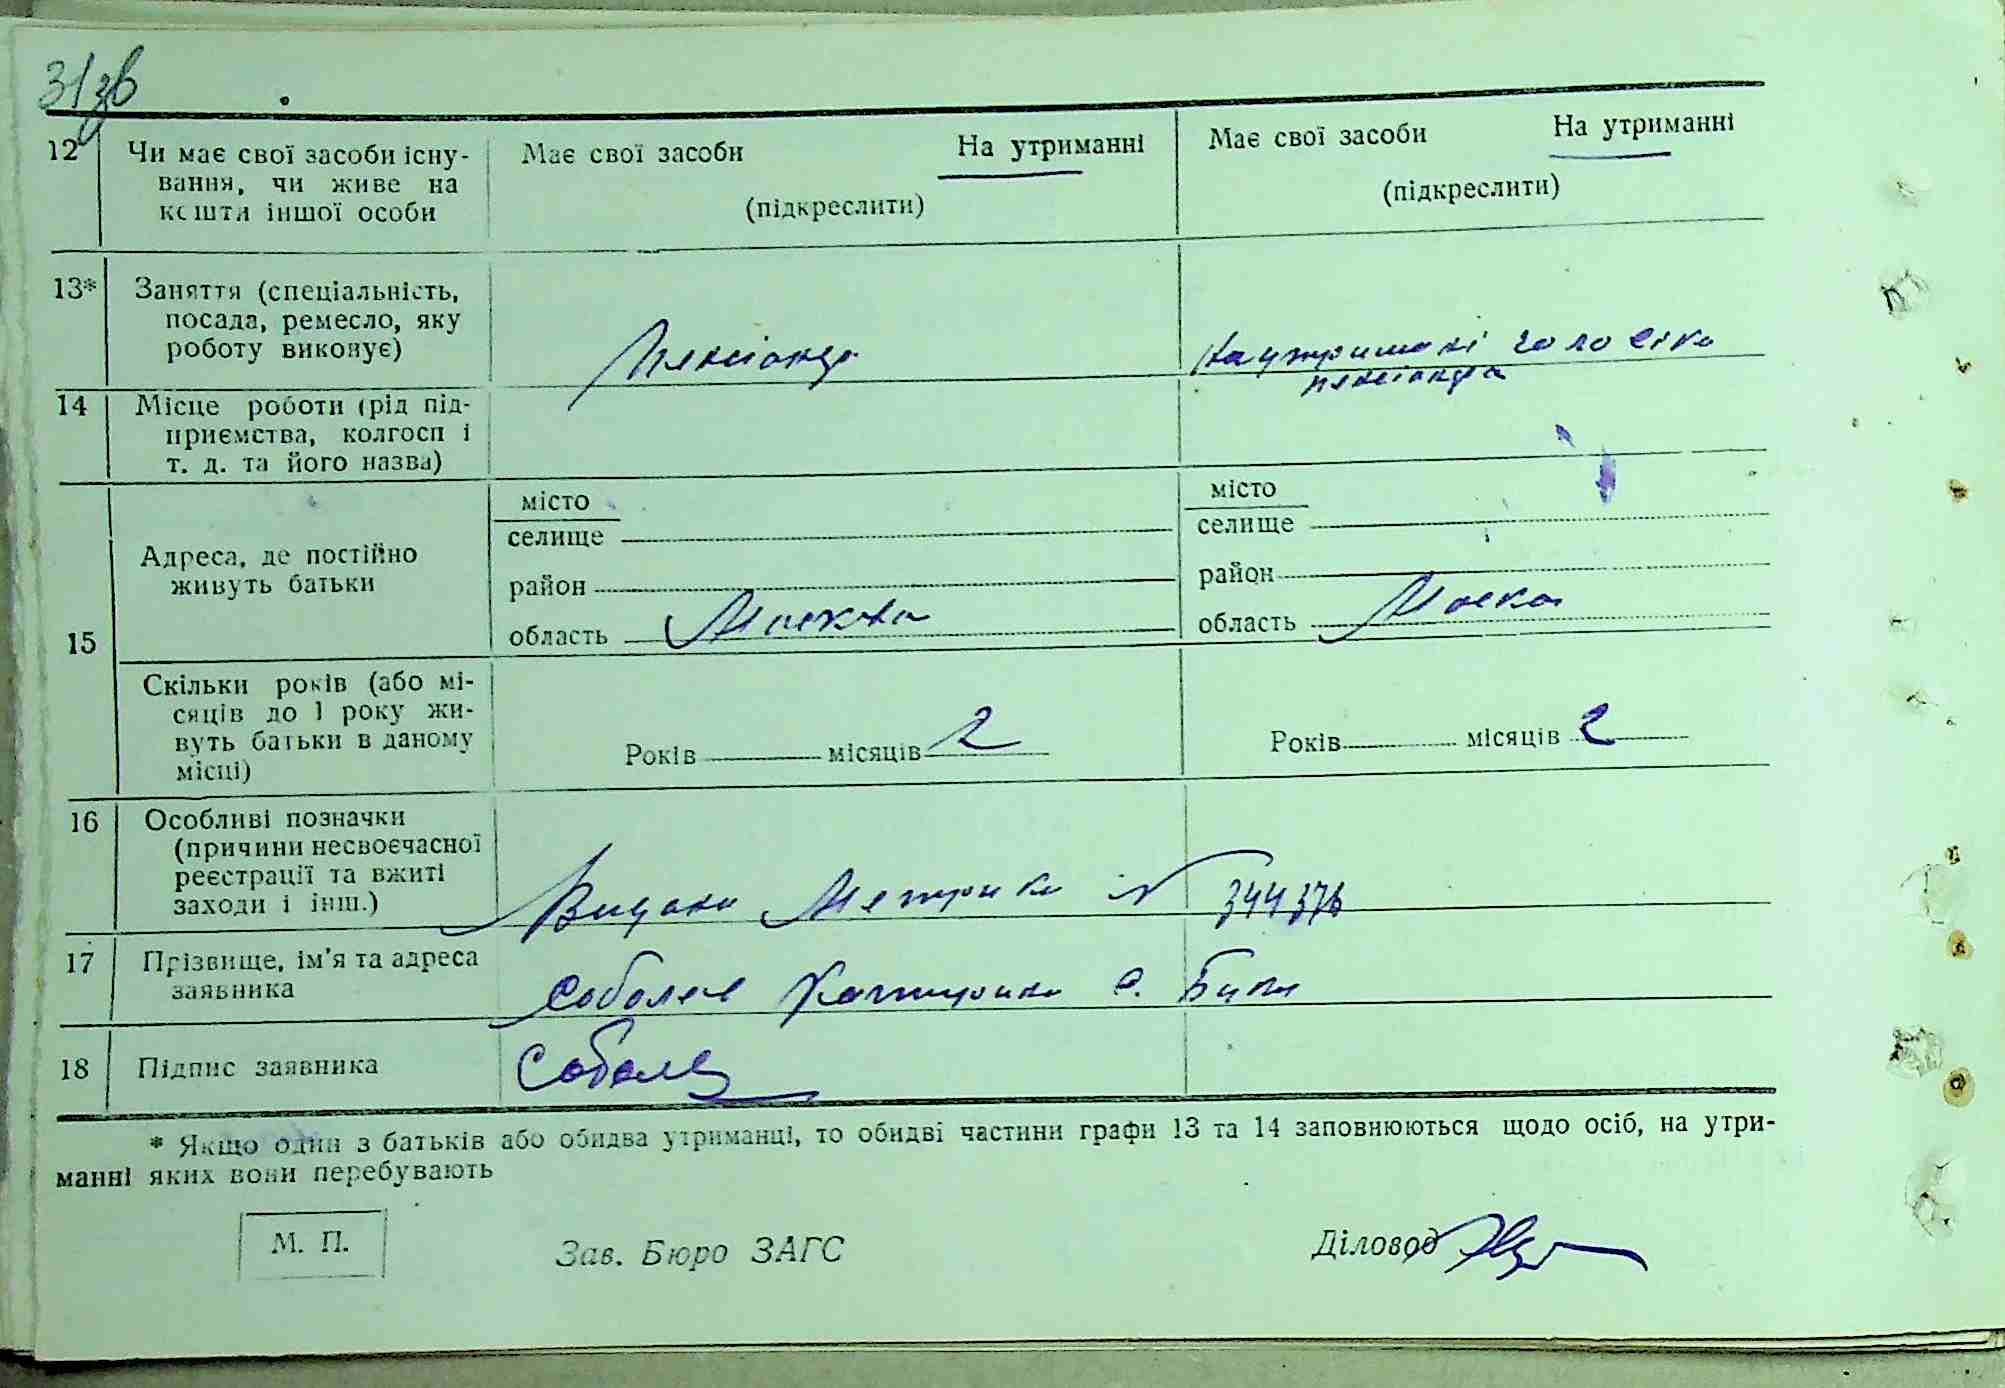 31зв
12 Чи має свої засоби існу-
вання, чи живе на
кошти іншої особи
Має свої засоби На утриманні
(підкреслити)
Має свої засоби На утриманні
(підкреслити)
13* Заняття (спеціальність,
посада, ремесло, яку
роботу виконує)
Пенсіонер
На утримані чоловіка
пенсіонера
14 Місце роботи (рід під-
приємства, колгосп і
т. д. та його назва)
15 Адреса, де постійно
живуть батьки
місто
селище
район
область Москва
місто
селище
район
область Москва
Скільки років (або мі-
сяців до 1 року жи-
вуть батьки в даному
місці)
Років місяців 2
Років місяців 2
16 Особливі позначки
(причини несвоєчасної
реєстрації та вжиті
заходи і інш.)
Видана Метрика № 344376
17 Прізвище, ім'я та адреса
заявника
Соболєв Катерина с.
18 Підпис заявника
Соболев
* Якщо один з батьків або обидва утриманці, то обидві частини графи 13 та 14 заповнюються щодо осіб, на утри-
манні яких вони перебувають
М. П.
Зав. Бюро ЗАГС
Діловод